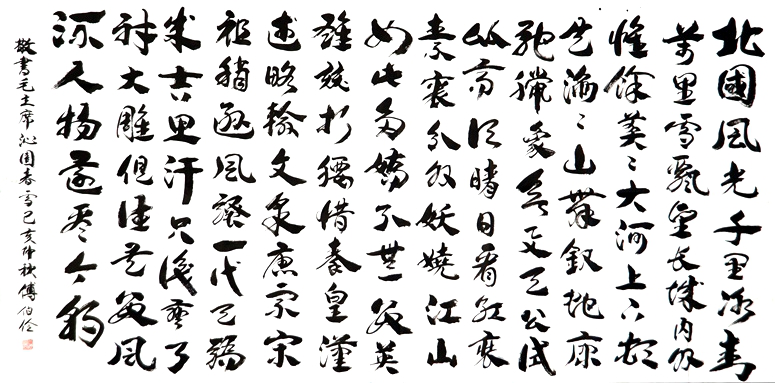 北國風光千里冰封
萬里雪飄望長城内外
惟餘莽〻大河上下頓
失滔〻山舞銀蛇原
馳臘象欲與天公試
比高須晴日看紅裝
素裹分外妖嬈江山
如此多嬌引無數英
雄競折腰惜秦皇漢
武略輸文采唐宗宋
祖稍遜風騷一代天驕
成吉思汗只識彎弓
射大雕俱往矣數風
流人物還看今朝
敬書毛主席沁園春雪己亥仲秋傅伯